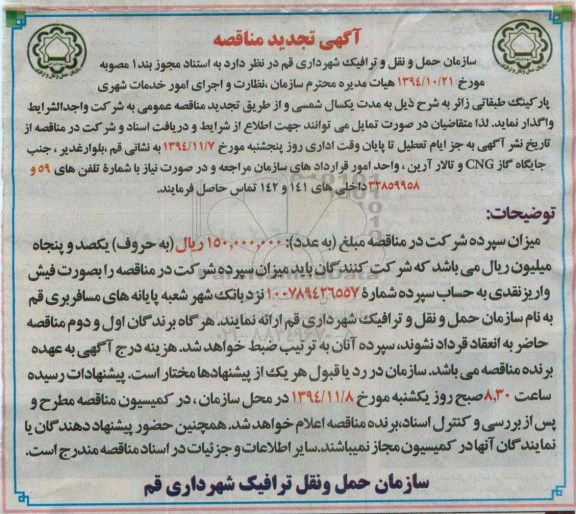 آگهی تجدید مناقصه
سازمان حمل و نقل و ترافیک شهرداری قم در نظر دارد به استناد مجوز بند۱ مصوبه
مورخ ۱۳۹۴/۱۰/۲۱ هیات مدیره محترم سازمان ،نظارت و اجرای امور خدمات شهری
پارکینگ طبقاتی زائر به شرح ذیل به مدت یکسال شمسی و از طریق تجدید مناقصه عمومی به شرکت واجدالشرایط
واگذار نماید. لذا متقاضیان در صورت تمایل می توانند جهت اطلاع از شرایط و دریافت اسناد و شرکت در مناقصه از
تاریخ نشر آگهی به جز ایام تعطیل تا پایان وقت اداری روز پنجشنبه مورخ ۱۳۹۴/۱۱/۷ به نشانی قم ،بلوارغدیر ، جنب
جایگاه گاز CNG و تالار آرین ، واحد امور قرارداد های سازمان مراجعه و در صورت نیاز با شمارهٔ تلفن های ۵۹ و
۳۲۸۵۹۹۵۸داخلی های ۱۴۱ و ۱۴۲ تماس حاصل فرمایند.
توضیحات:
میزان سپرده شرکت در مناقصه مبلغ (به عدد): ۱۵۰,۰۰۰,۰۰۰ ریال (به حروف) یکصد و پنجاه
میلیون ریال می باشد که شرکت کنندگان باید میزان سپرده شرکت در مناقصه را بصورت فیش
واریز نقدی به حساب سپرده شمارهٔ ۱۰۰۷۸۹۴۳۶۵۵۷ نزد بانک شهر شعبه پایانه های مسافربری قم
به نام سازمان حمل و نقل و ترافیک شهرداری قم ارائه نمایند. هرگاه برندگان اول و دوم مناقصه
حاضر به انعقاد قرداد نشوند، سپرده آنان به ترتیب ضبط خواهد شد. هزینه درج آگهی به عهده
برنده مناقصه می باشد. سازمان در رد یا قبول هر یک از پیشنهادها مختار است. پیشنهادات رسیده
ساعت ۸,۳۰صبح روز یکشنبه مورخ ۱۳۹۴/۱۱/۸ در محل سازمان ، در کمیسیون مناقصه مطرح و
پس از بررسی و کنترل اسناد،برنده مناقصه اعلام خواهد شد. همچنین حضور پیشنهاد دهندگان یا
نمایندگان آنها در کمیسیون مجاز نمیباشند.سایر اطلاعات و جزئیات در اسناد مناقصه مندرج است.
سازمان حمل ونقل ترافیک شهرداری قم